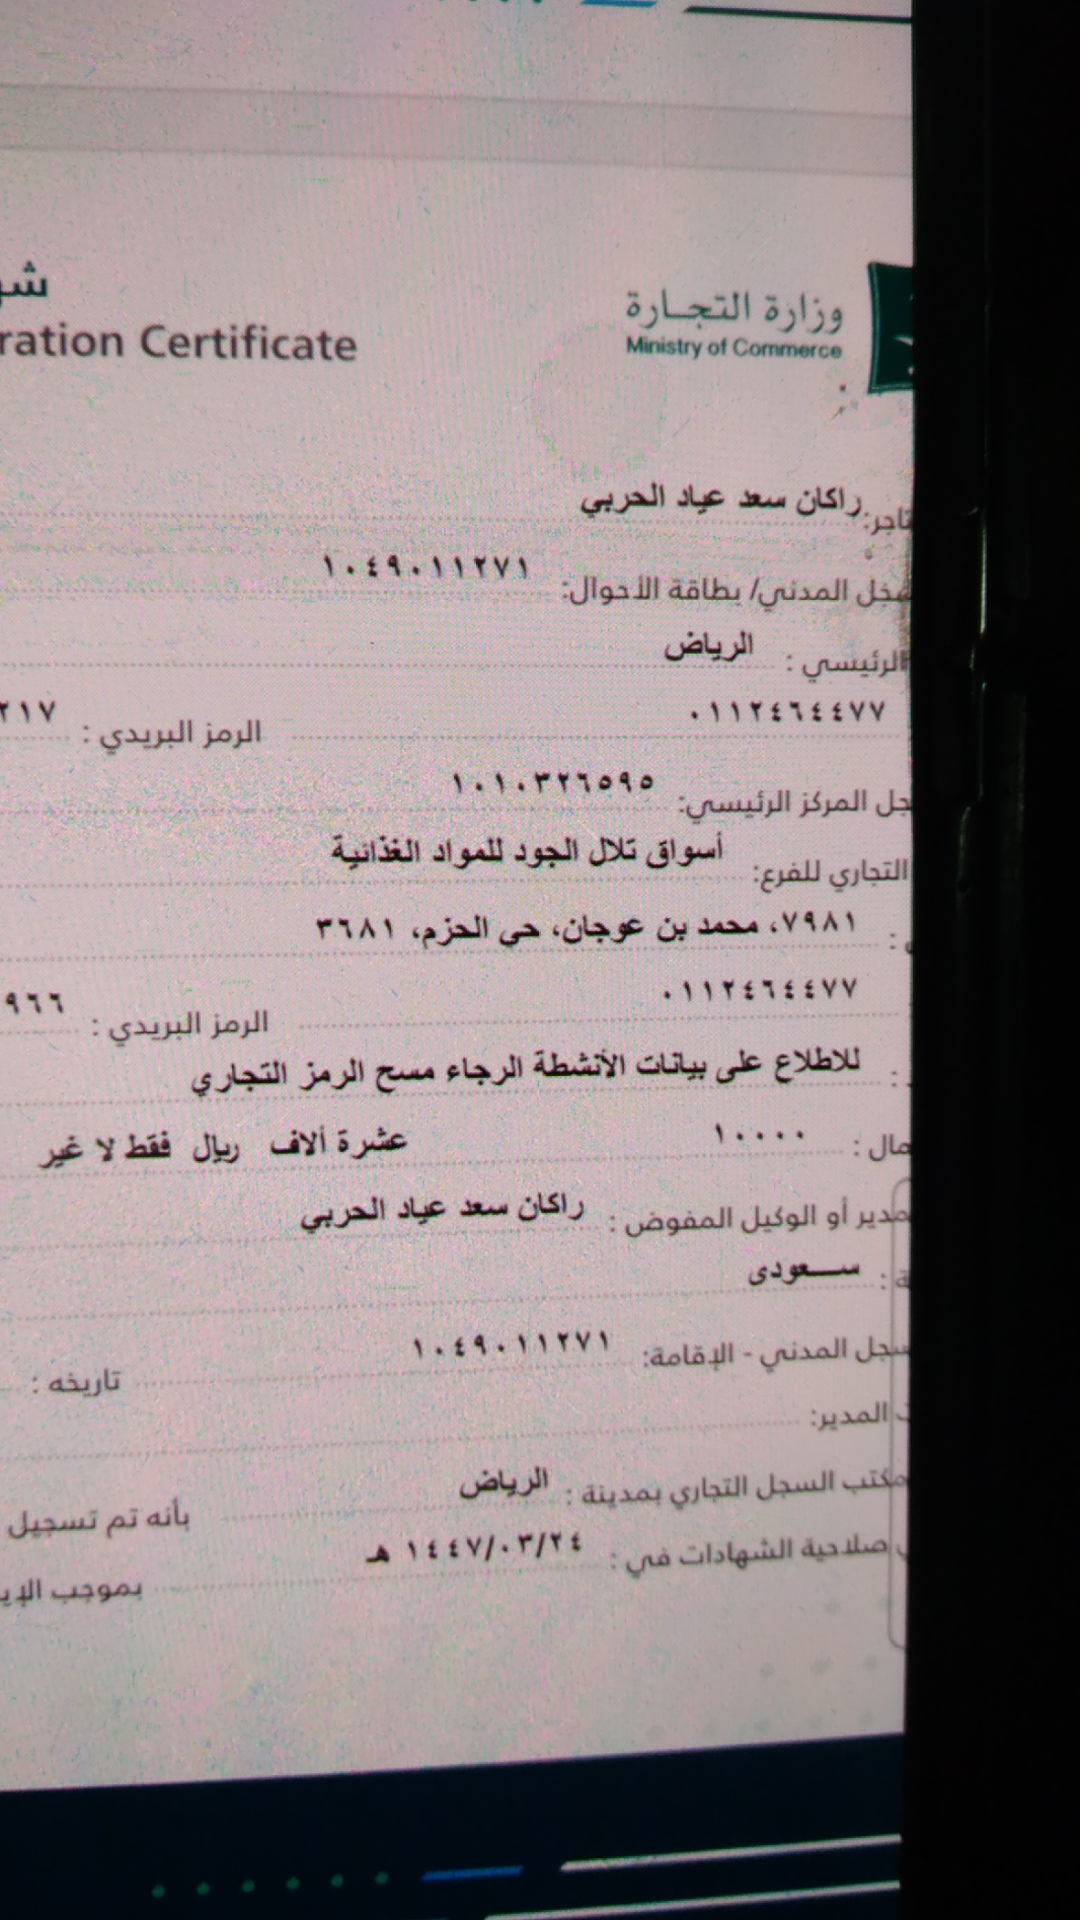 وزارة التجارة
Ministry of Commerce
Certificate
راكان سعد عياد الحربي
المدني/ بطاقة الأحوال: ١٠٤٩٠١١٢٧١
الرئيسي : الرياض
٠١١٢٤٦٤٤٧٧ الرمز البريدي :
المركز الرئيسي: ١٠١٠٣٢٦٥٩٥
التجاري للفرع: أسواق تلال الجود للمواد الغذائية
٧٩٨١، محمد بن عوجان، حى الحزم، ٣٦٨١
٠١١٢٤٦٤٤٧٧ الرمز البريدي :
للاطلاع على بيانات الأنشطة الرجاء مسح الرمز التجاري
مال : ١٠٠٠٠ عشرة ألاف ريال فقط لا غير
مدير أو الوكيل المفوض : راكان سعد عياد الحربي
سعودى
سجل المدني - الإقامة: ١٠٤٩٠١١٢٧١ تاريخه :
المدير:
مكتب السجل التجاري بمدينة : الرياض بأنه تم تسجيل
صلاحية الشهادات في : ١٤٤٧/٠٣/٢٤ هـ بموجب